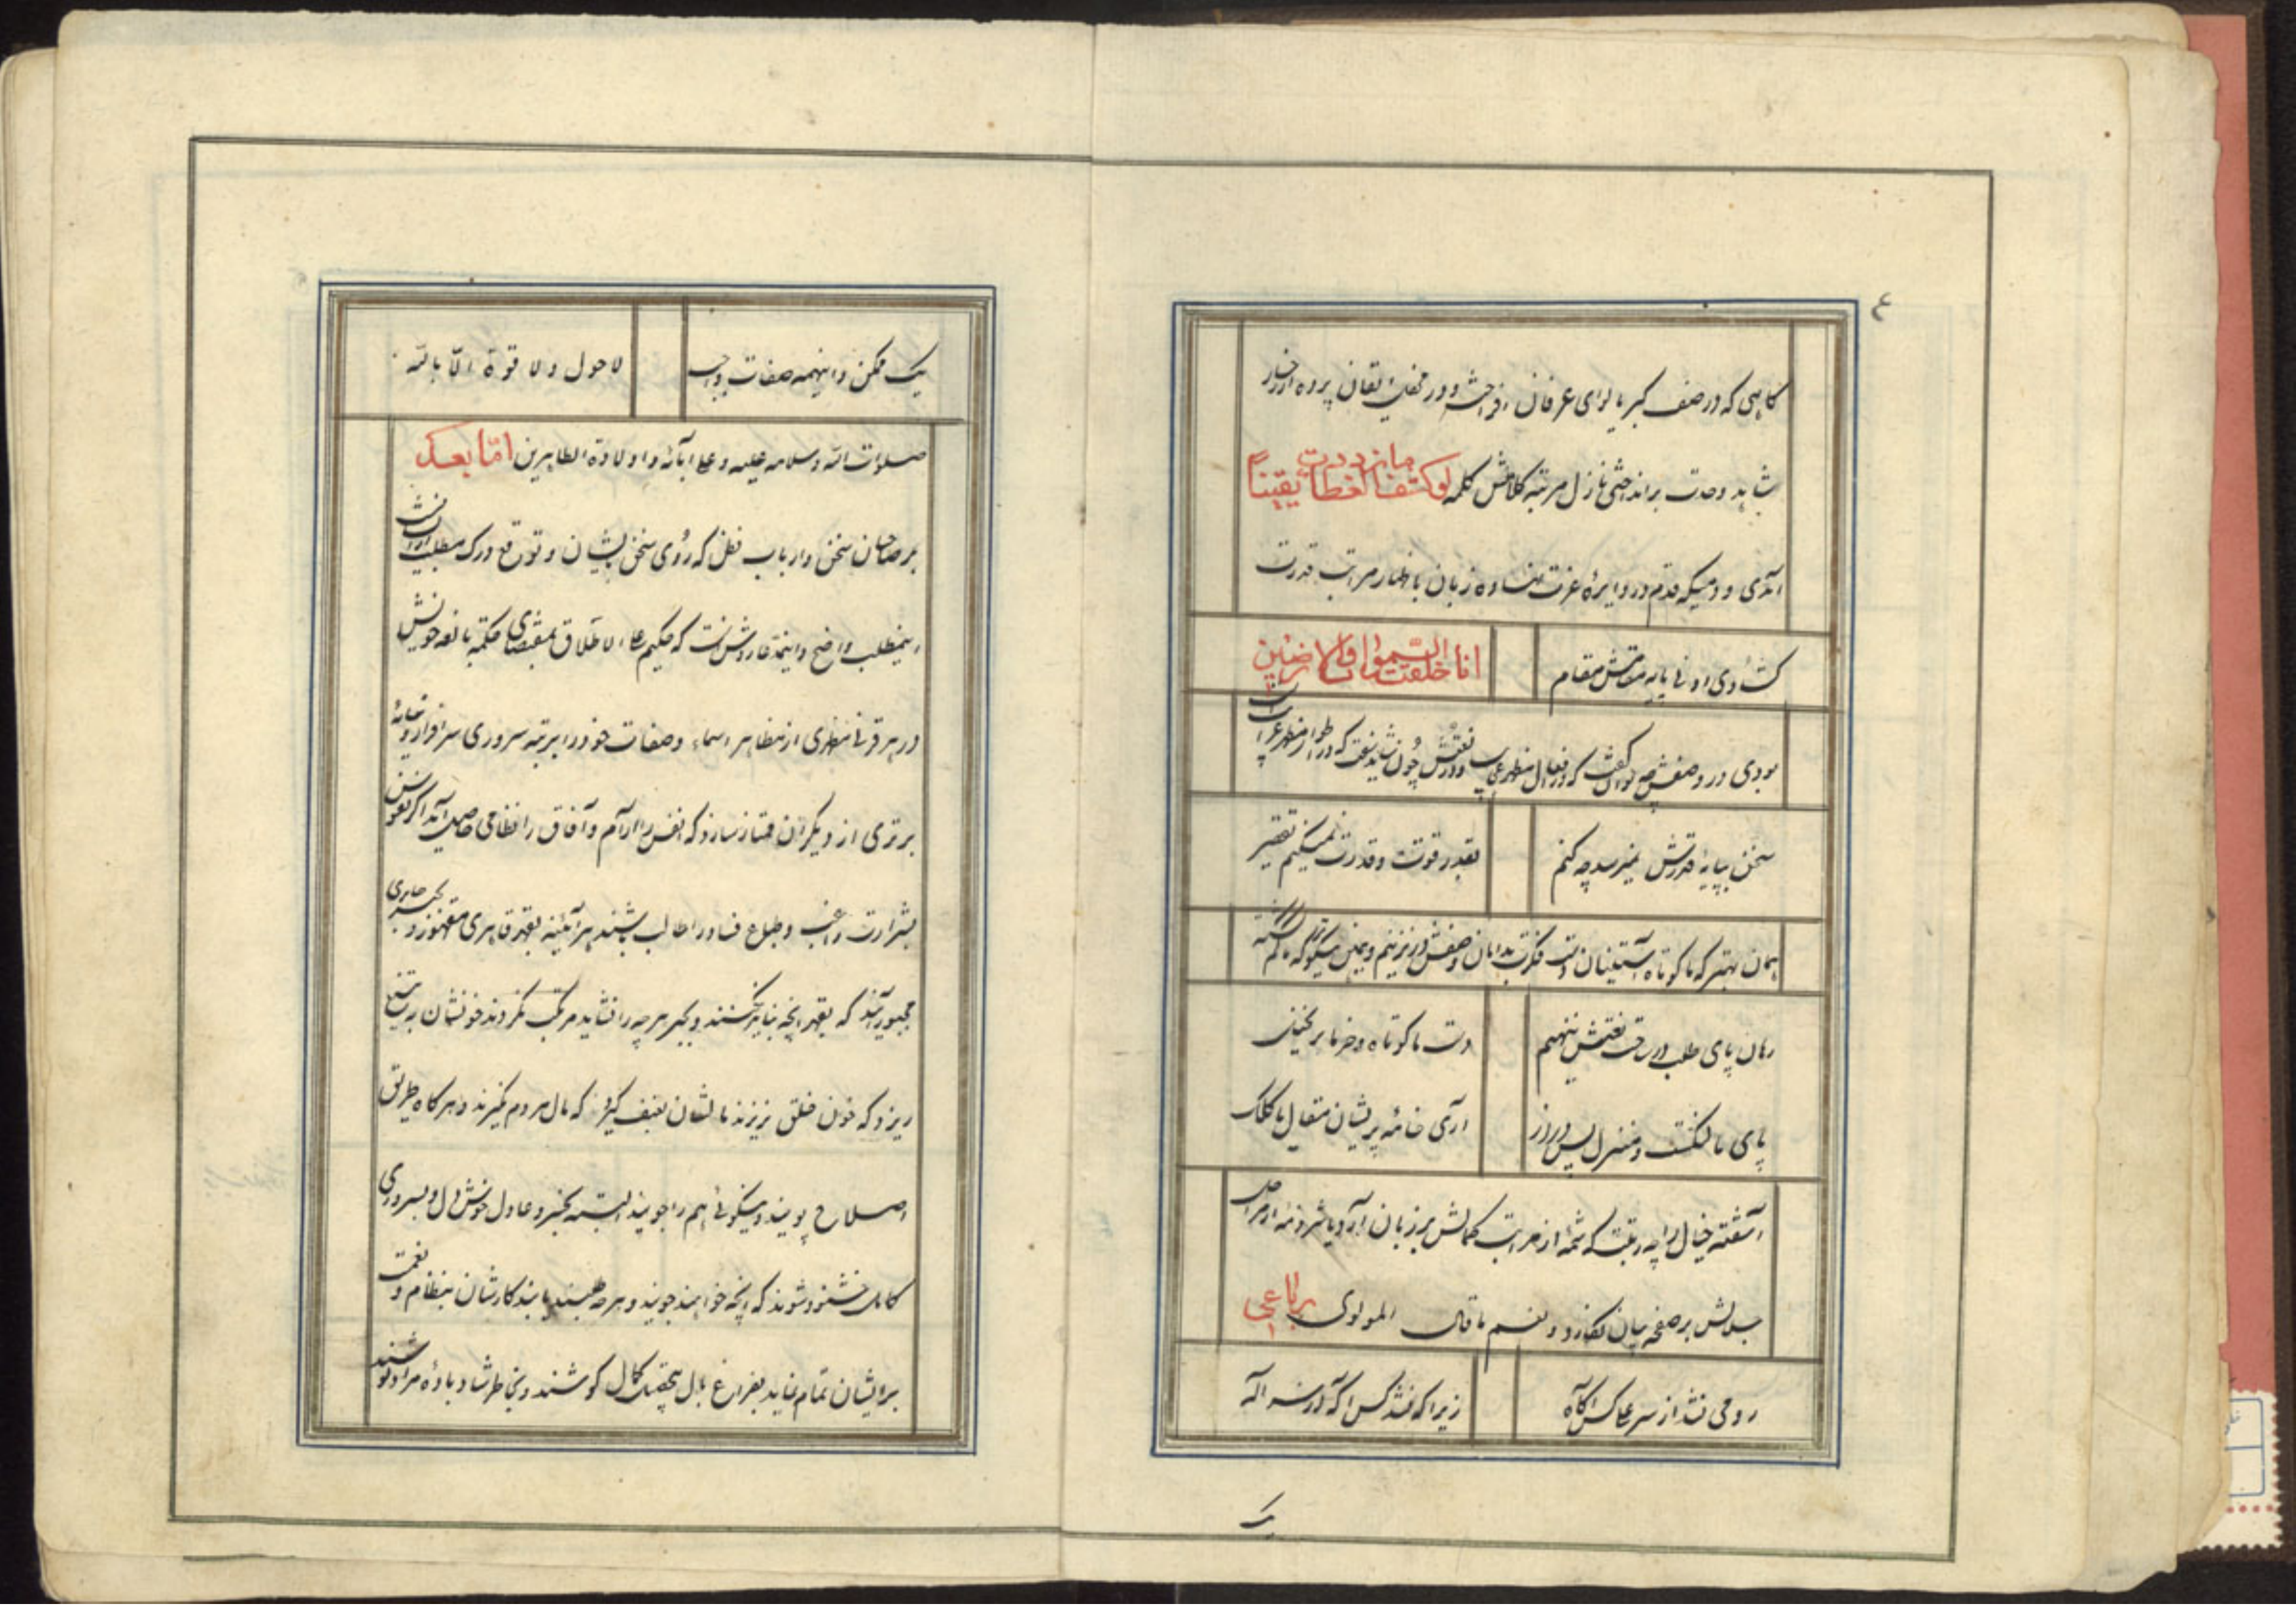 ۴
گاهی که در صف کبریا لوای عرفان افراخته و در محفل ایقان پرده از رخسار
شاهد وحدت برانداختی نازل مرتبه کلامش کلمه لو کشف الغطا ما ازددت یقیناً
آمدی و دمیکه قدم در دایرهٔ عزت نهاده زبان باظهار مراتب قدرت
گشادی ادنی پایه مقامش مقام
انا خلقت السموات والارضین
بودی در وصفش چه توان گفت که در افعال مظهر عجایب و در نعتش چون شاید سفت که در اطوار مظهر غرایب است
سخن بپایهٔ قدرش نمیرسد چه کنم
بقدر قوت و قدرت نمیکنیم تقصیر
همان بهتر که ما کوتاه آستینان دست فکرت بدامان وصفش در نزنیم و
پای طلب در نعتش ننهیم
دست ما کوتاه و خرما بر نخیل
پای ما لنگست و منزل بس دراز
آری خامه پریشان مقال با کلک
آشفته خیال را چه رتبت که شمهٔ از مراتب کمالش بر زبان آرد یا شرذمه از مراحل
جلالش بر صفحه بیان نگارد و نعم ما قال المولوی رباعی
رومی نشد از سر علی کس آگاه
زیرا که نشد کس آگه از سر اله
یک
یک ممکن و اینهمه صفات واجب
لا حول ولا قوة الا بالله
صلوات الله وسلامه علیه و علی آبائه و اولاده الطاهرین اما بعد
بر صاحبان سخن و ارباب فطن که روی سخن بایشان و توقع درک مطلب از ایشانست
اینمطلب واضح و اینمدعا روشن است که حکیم علی الاطلاق بمقتضای حکمة بالغه خویش
در هر قرنی مظهری از مظاهر اسماء و صفات خود را بمرتبه سروری سرافراز و بپایهٔ
برتری از دیگران ممتاز سازد که انفس را آرام و آفاق را نظامی حاصل آید اگر نفوس
بشرارت راغب و طباع فساد را طالب باشند هرآئینه بقهر قاهری مقهور و بجبر جابری
مجبور آیند که بقهر آنچه نباید نکنند و بجبر هرچه را نشاید مرتکب نگردند خونشان به تیغ
ریزد که خون خلق نریزند مالشان بعنف گیرد که مال مردم نگیرند و هرگاه طریق
اصلاح پویند و نیکوئی هم را جویند البته بخسرو عادل خوش دل و بسروری
کامل خشنود شوند که آنچه خواهند جویند و هرچه طلبند یابند کارشان بنظام و نعمت
برایشان تمام نماید بفراغ بال بتحقیق کمال کوشند و بخاطر شاد بادهٔ مراد نوشند